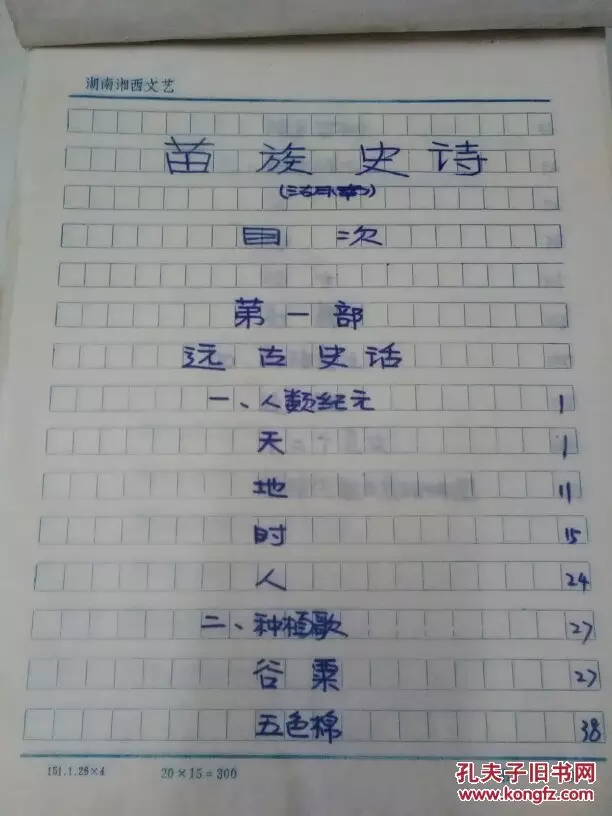 湖南湘西文艺
苗族史诗
目次
第一部
远古史话
一、人类纪元 1
天 1
地 11
时 15
人 24
二、种植歌 27
谷粟 27
五色棉 38
151.1.28×4 20×15=300
孔夫子旧书网
www.kongfz.com